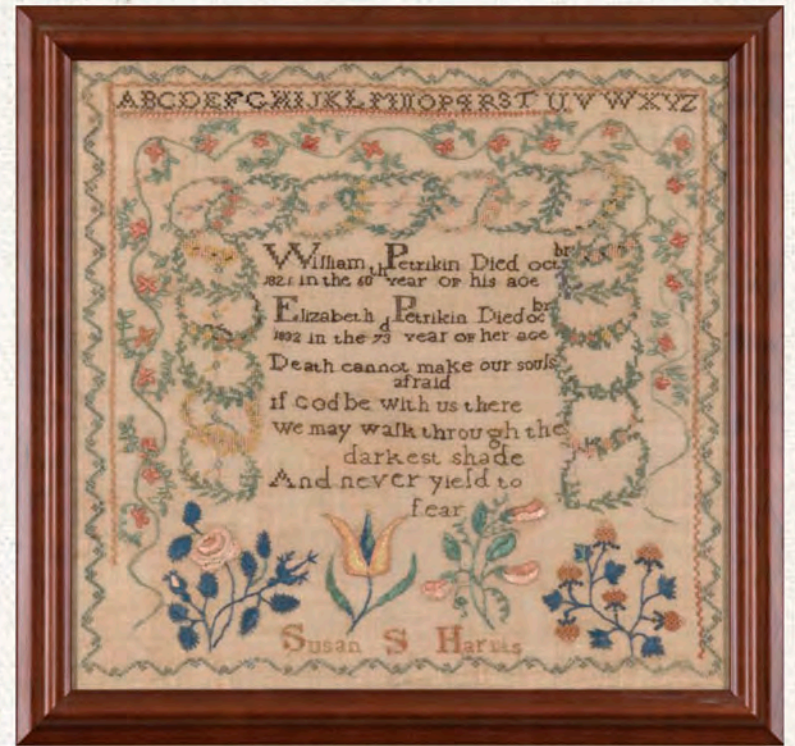 ABCDEFGHIJKLMNOPQRST UVWXYZ
William Petrikin Died octbr
1821 in the 60th year of his age
Elizabeth Petrikin Died ocbr
1832 in the 73d year of her age
Death cannot make our souls
afraid
if God be with us there
we may walk through the
darkest shade
And never yield to
fear
Susan S Harris